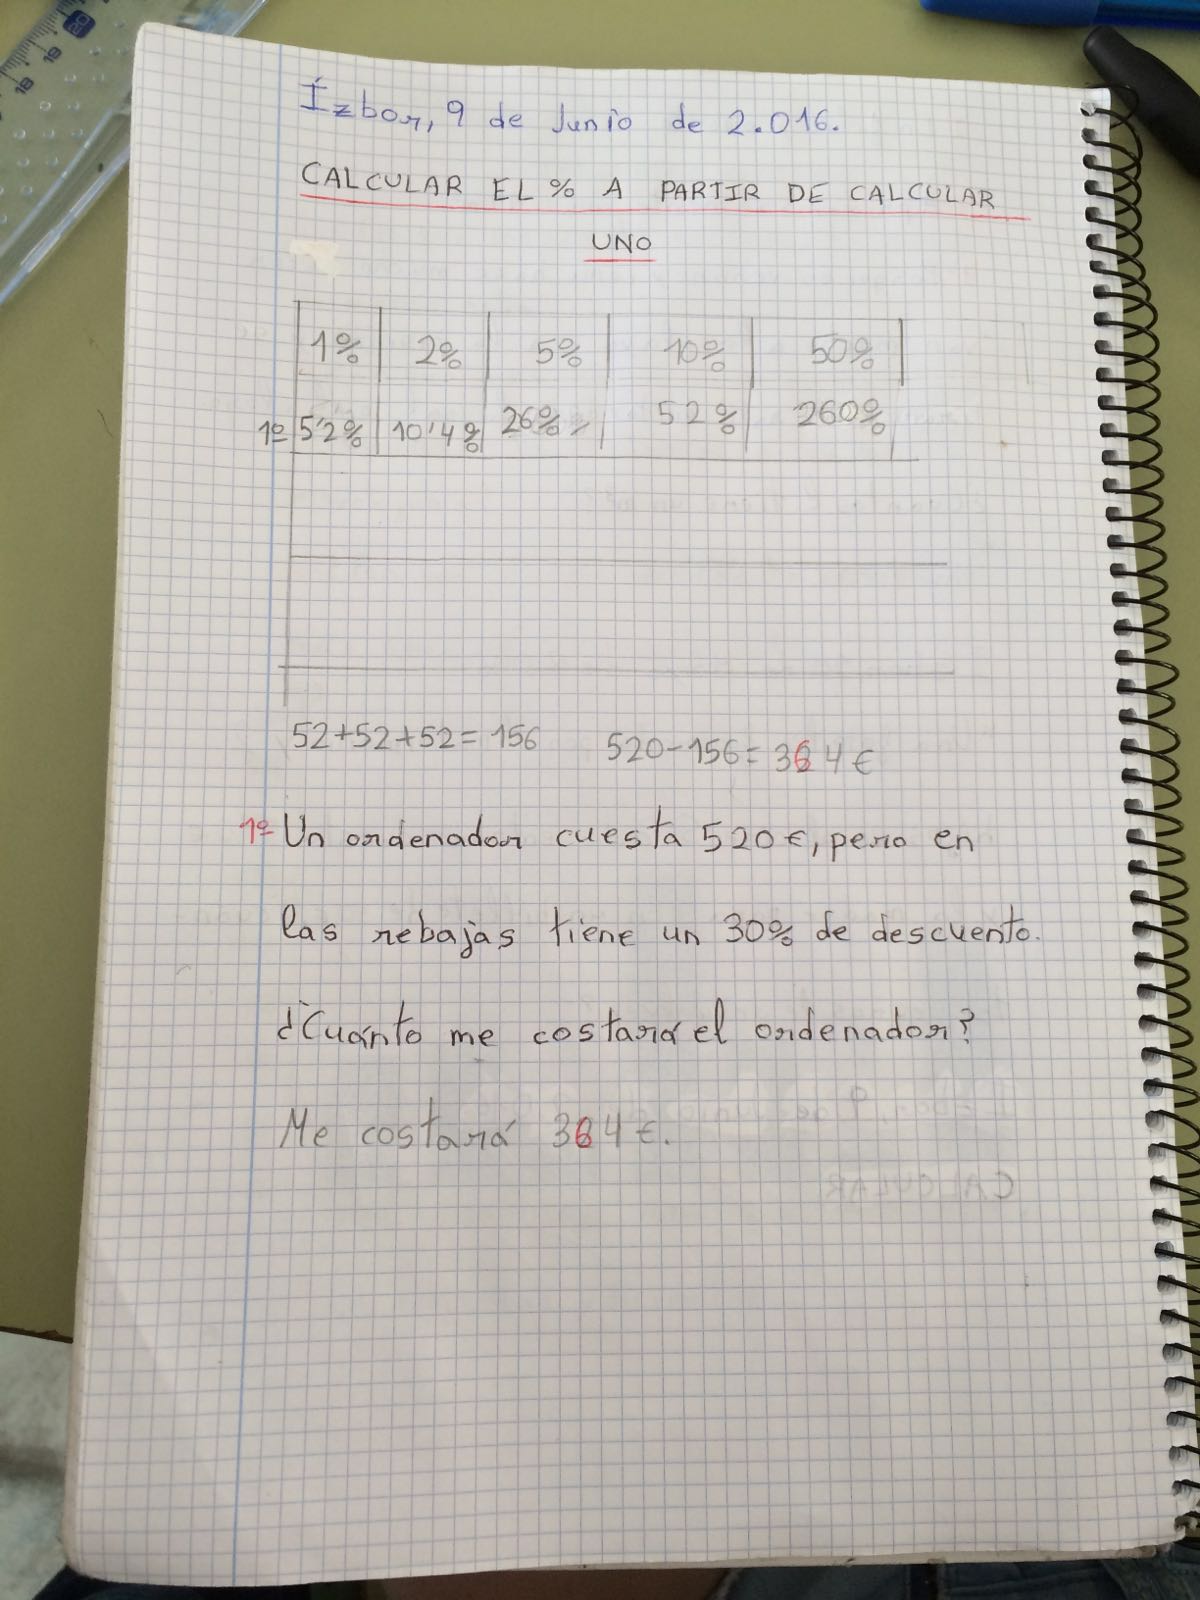 Ízbor, 9 de Junio de 2.016.
CALCULAR EL % A PARTIR DE CALCULAR
UNO
1% 2% 5% 10% 50%
1º 5'2% 10'4% 26% 52% 260%
52+52+52= 156 520-156= 364€
1º Un ordenador cuesta 520€, pero en
las rebajas tiene un 30% de descuento.
¿Cuánto me costará el ordenador?
Me costará 364€.
CALCULAR
20
19
18